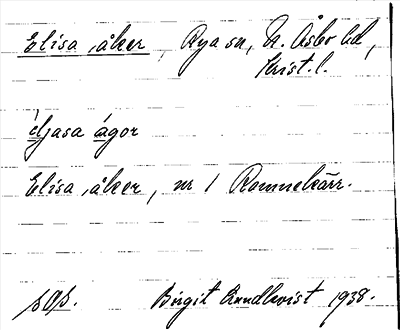 Elisa åker, Rya sn, N. Åsbo hd,
Krist. l.
éljasa ágor
Elisa åker, nr 1 Rammekärr.
sgs.
Birgit Rundkvist 1938.